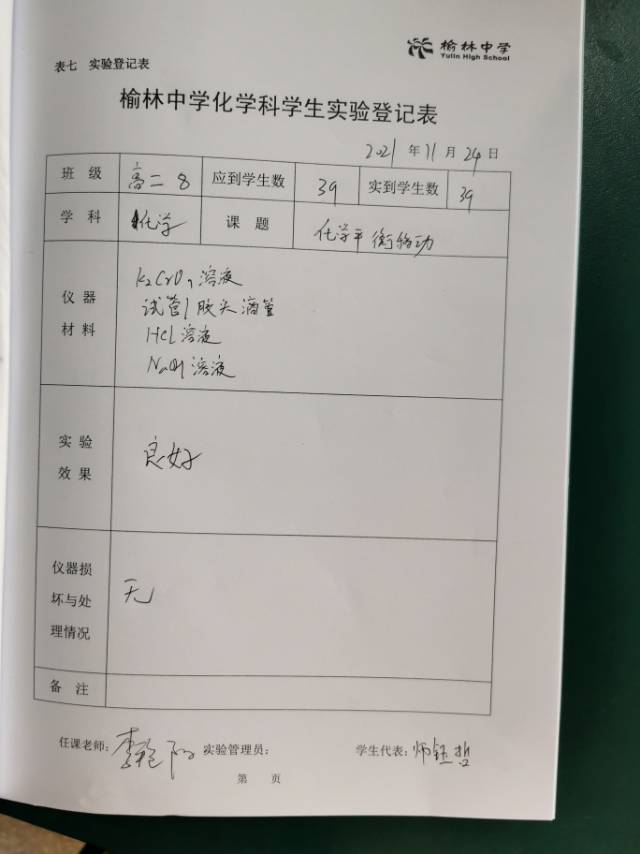 榆林中学
Yulin High School
表七 实验登记表
榆林中学化学科学生实验登记表
2021 年 11 月 24 日
班 级 高二 8 应到学生数 39 实到学生数 39
学 科 化学 课 题 化学平衡移动
仪 器 材 料
K2CrO4溶液
试管 胶头滴管
HCl 溶液
NaOH 溶液
实 验 效 果 良好
仪器损
坏与处
理情况
无
备 注
任课老师: 李艳 实验管理员: 学生代表: 师钰哲
第 页